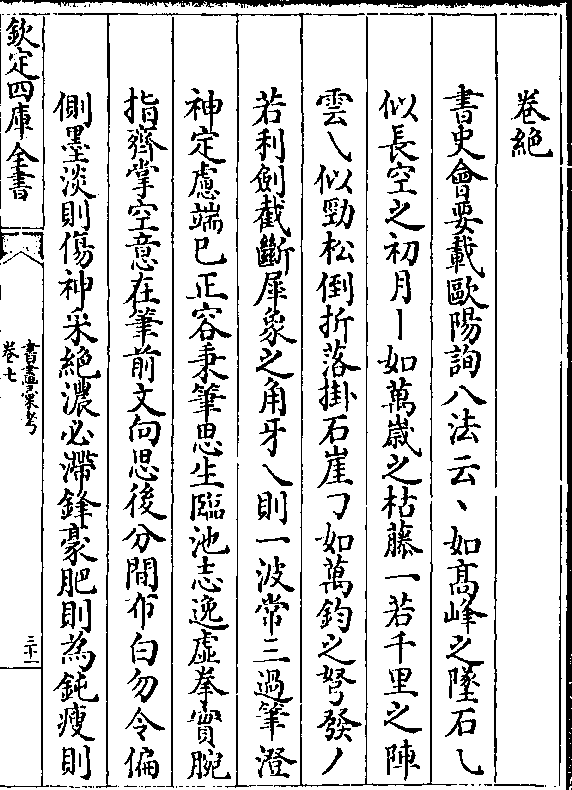 卷絶
書史會要載歐陽詢八法云丶如髙峰之墜石乚
似長空之初月丨如萬歲之枯藤一若千里之陣
雲乀似勁松倒折落掛石崖㇆如萬鈞之弩發丿
若利劍截斷犀象之角牙乀則一波常三過筆澄
神定慮端已正容秉筆思生臨池志逸虚拳實腕
指齊掌空意在筆前文向思後分間布白勿令偏
側墨淡則傷神采絶濃必滯鋒豪肥則為鈍瘦則
欽定四庫全書
書畫彚考
卷七
三十二